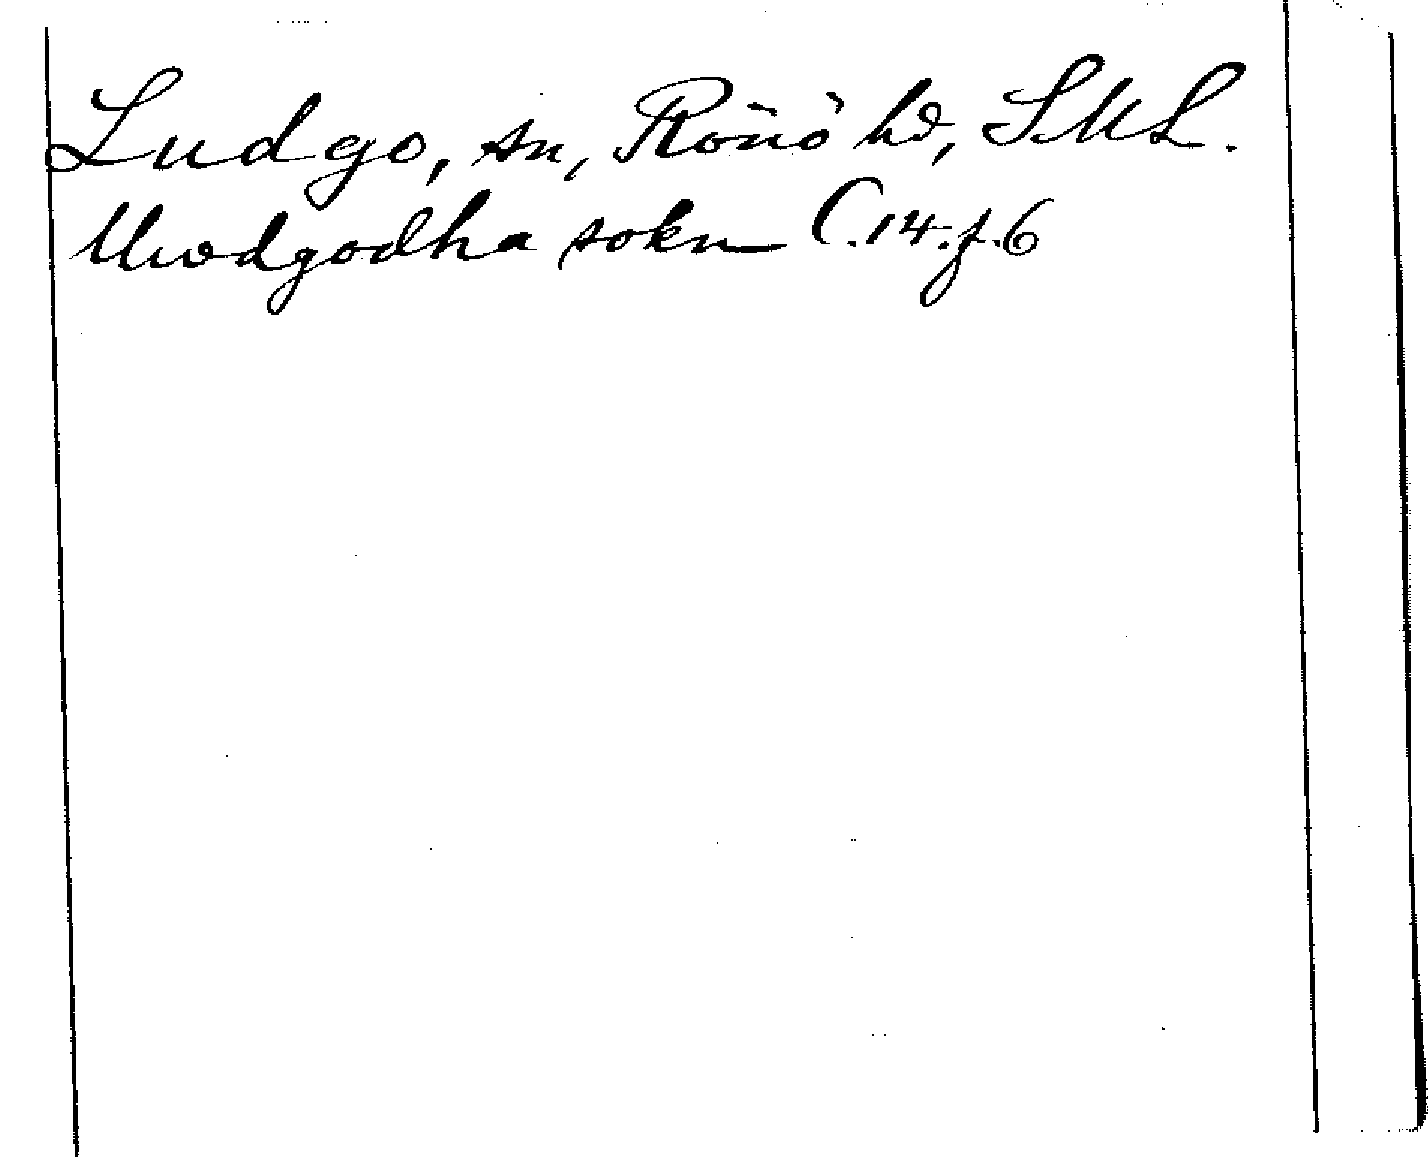 Ludgo, sn, Rönö hd, SML.
Liwdgodha sokn C.14.f.6